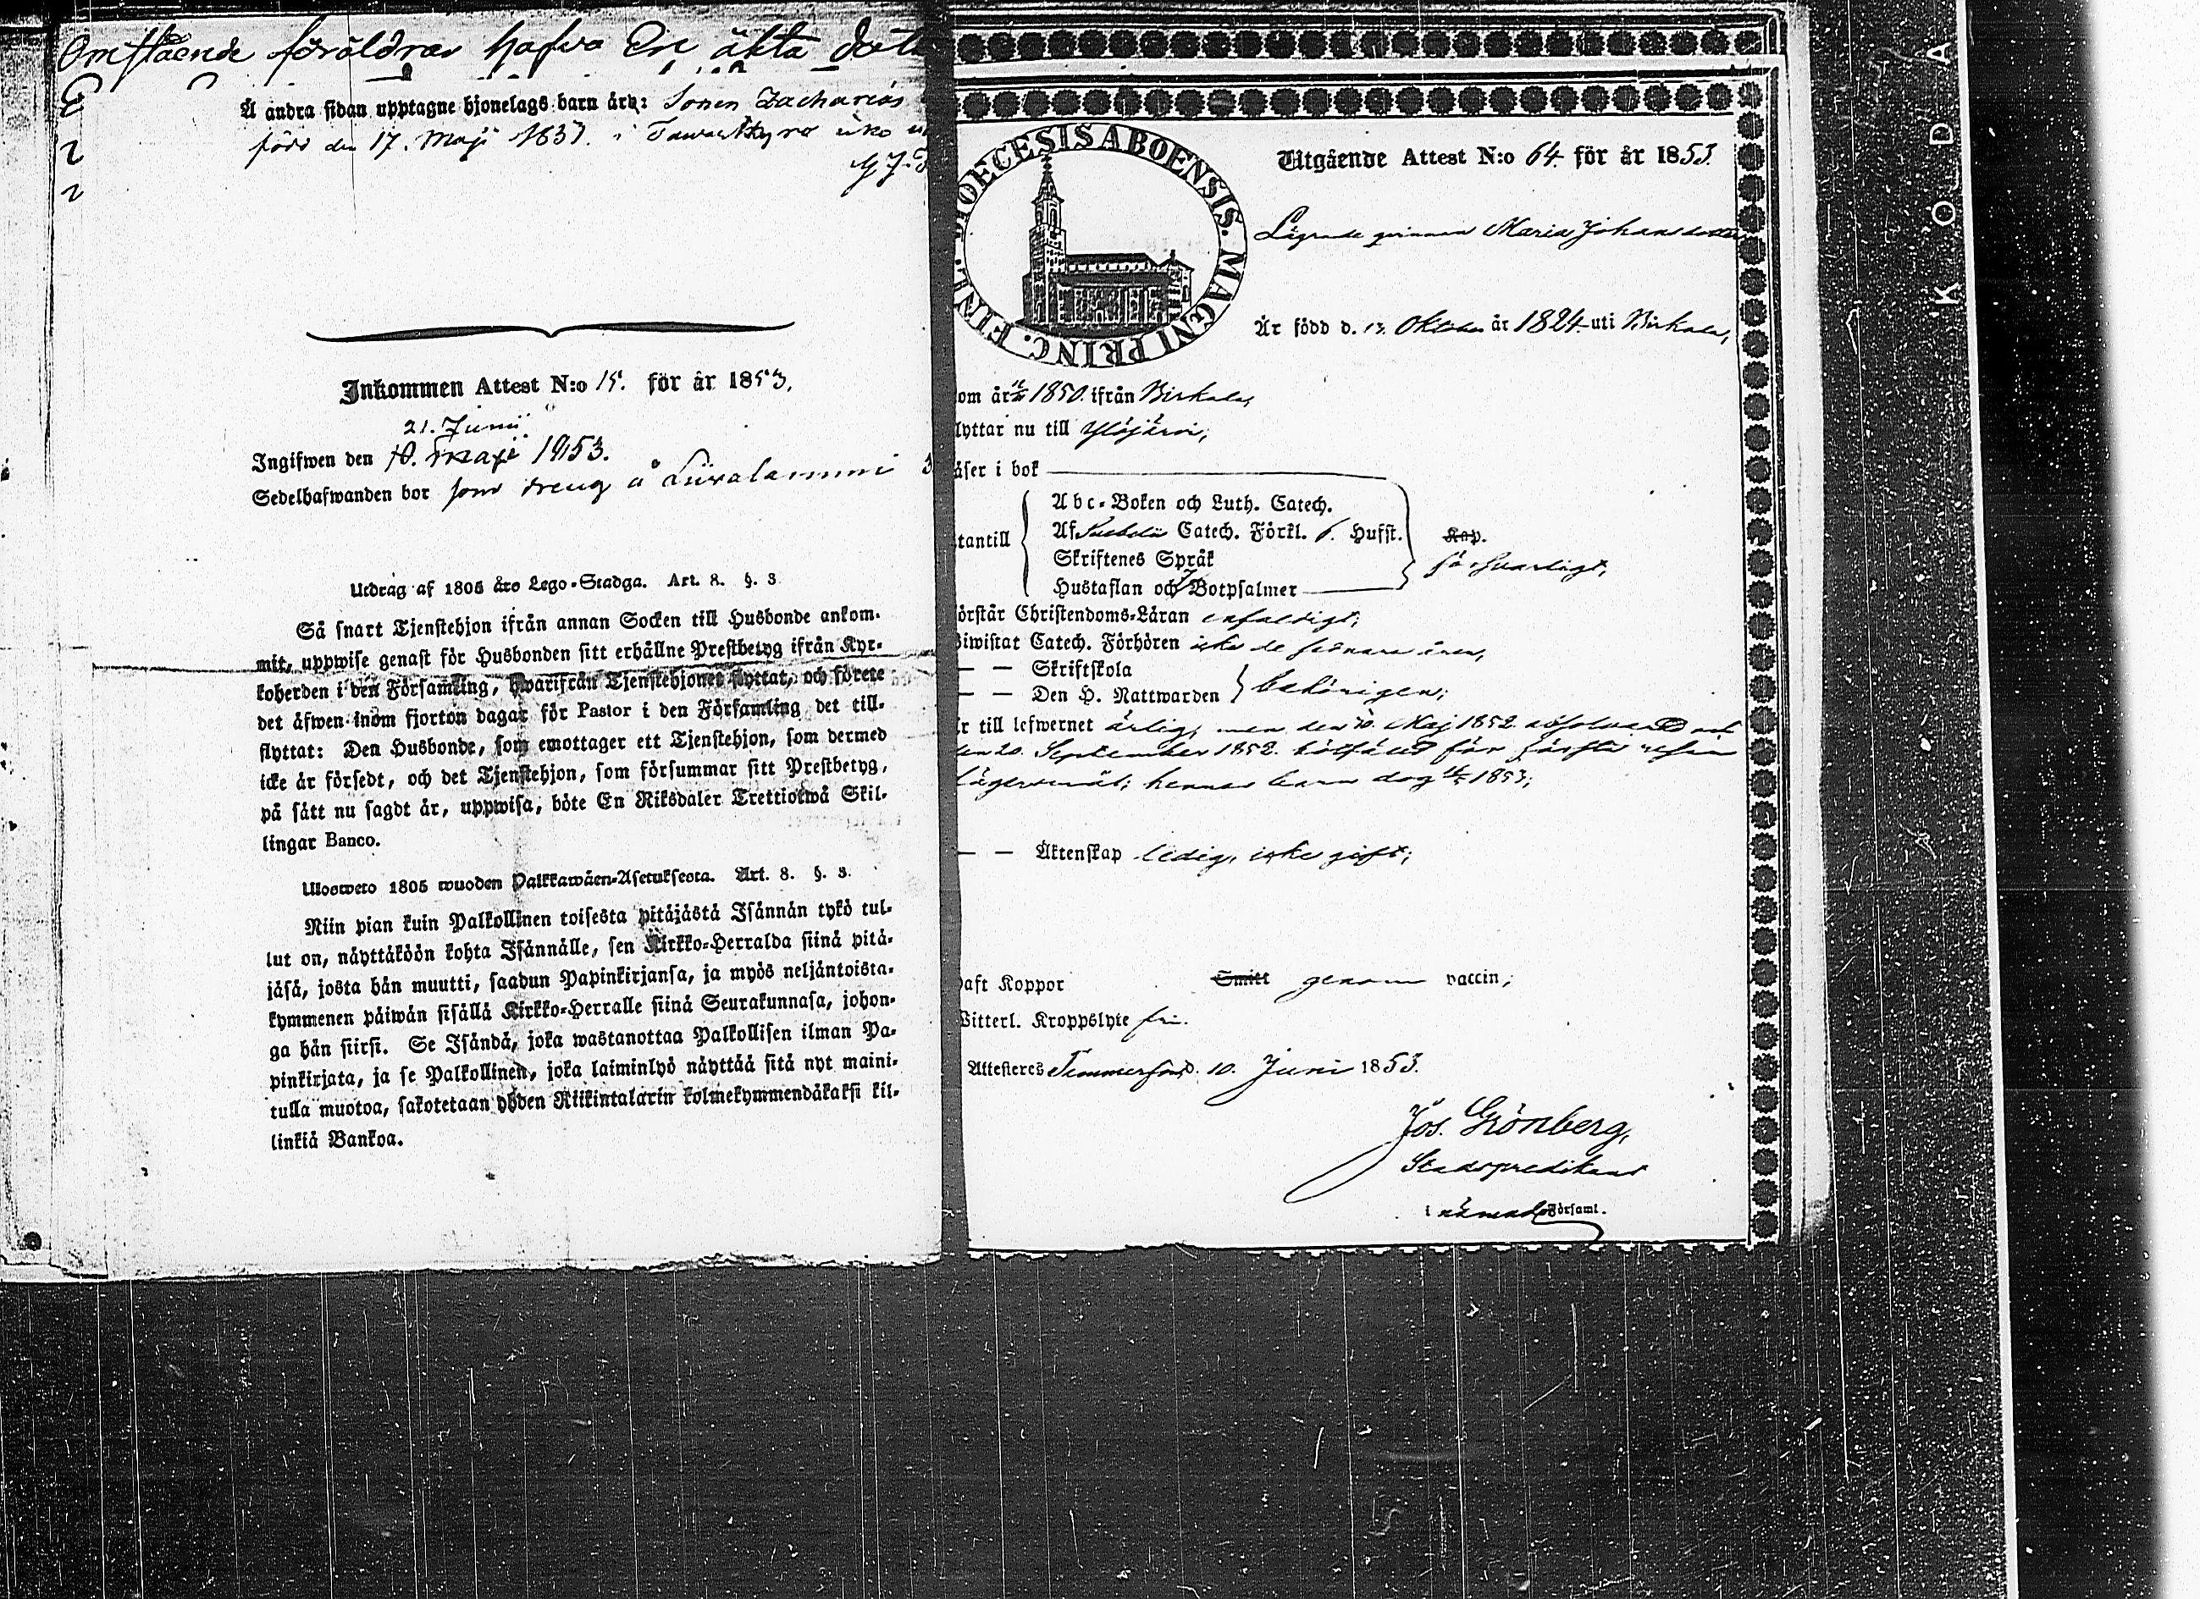 Omstående föräldrar hafva En äkta
Å andra sidan upptagne hjonelags barn äro: Sonen Zacharias
född den 17. Maji 1837. i Tavastkyro
Inkommen Attest N:o 15. för år 1853.
21. Junii
Ingifwen den 10. Maji 1853.
Sedelhafwanden bor som dreng å
Utdrag af 1805 års Lego-Stadga. Art. 8. §. 3
Så snart Tjenstehjon ifrån annan Socken till Husbonde ankom-
mit, uppwise genast för Husbonden sitt erhållne Prestbetyg ifrån Kyr-
koherden i den Församling, hwarifrån Tjenstehjonet flyttat, och förete
det äfwen inom fjorton dagar för Pastor i den Församling det till-
flyttat: Den Husbonde, som emottager ett Tjenstehjon, som dermed
icke är försedt, och det Tjenstehjon, som försummar sitt Prestbetyg,
på sätt nu sagdt är, uppwisa, böte En Riksdaler Trettiotwå Skil-
lingar Banco.
Ulosweto 1805 wuoden Palkkawäen-Asetuksesta. Art. 8. §. 3.
Niin pian kuin Palkollinen toisesta pitäjästä Isännän tykö tul-
lut on, näyttäköön kohta Isännälle, sen Kirkko-Herralda siinä pitä-
jäsä, josta hän muutti, saadun Papinkirjansa, ja myös neljäntoista-
kymmenen päiwän sisällä Kirkko-Herralle siinä Seurakunnasa, johon-
ga hän siirsi. Se Isändä, joka wastanottaa Palkollisen ilman Pa-
pinkirjata, ja se Palkollinen, joka laiminlyö näyttää sitä nyt maini-
tulla muotoa, sakotetaan yhden Riikintalarin kolmekymmendäkaksi kil-
linkiä Bankoa.
DIOECESIS ABOENSIS. MAGNI PRINC. FINL.
Utgående Attest N:o 64. för år 1853.
Lägrade qvinnan Maria Johansdotter
Är född d. 13. Oktober år 1824. uti Birkala,
om år 1850. ifrån Birkala,
lyttar nu till Ylöjärvi,
äser i bok
tantill
Abc-Boken och Luth. Catech.
Af Catech. Förkl. 6. Hufst.
Skriftenes Språk
Hustaflan och 7 Botpsalmer
Kap.
försvarligt,
örstår Christendoms-Läran enfaldigt;
iwistat Catech. Förhören icke de sednare åren,
— — Skriftskola
— — Den H. Nattwarden
behörigen;
r till lefwernet ärlig, men den 10. Maj 1852 absolverad och
den 20. September 1852. bötfäld för första resan
lägersmål; hennes barn dog 1853;
— — Äktenskap ledig, icke gift;
aft Koppor Smitt genom vaccin;
Witterl. Kroppslyte fri.
Attesteres Tammerfors d. 10. Juni 1853.
Jos. Grönberg,
Stadspredikant
i nämnde Församl.
KODA